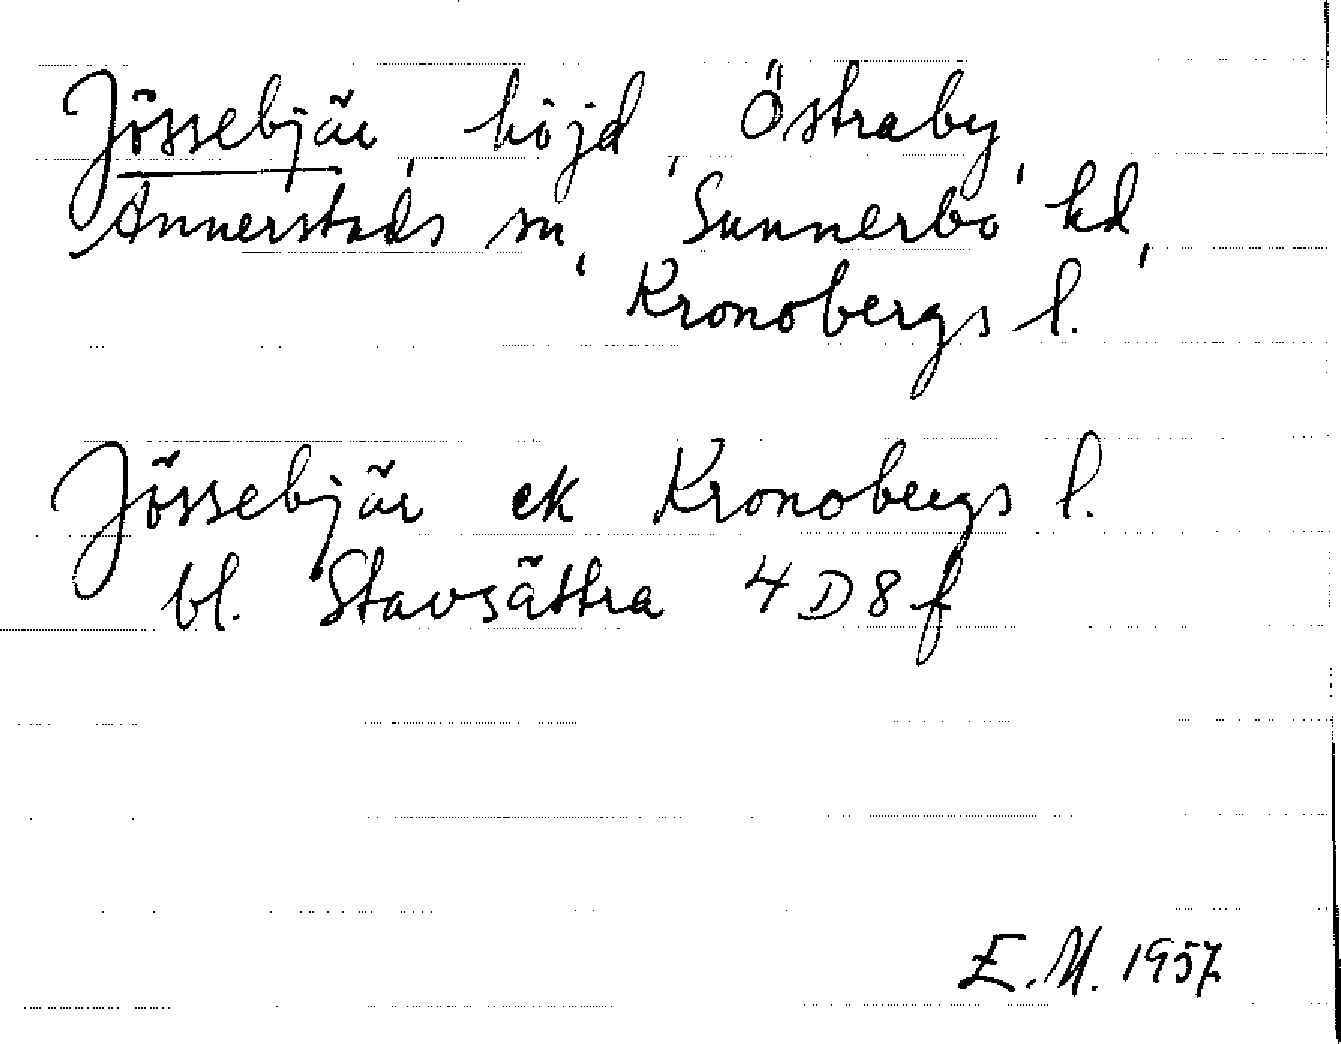 Jössebjär, höjd, Östraby,
Annerstads sn, Sunnerbo hd,
Kronobergs l.
Jössebjär ek Kronobergs l.
bl. Stavsättra 4D8f
E.M. 1957